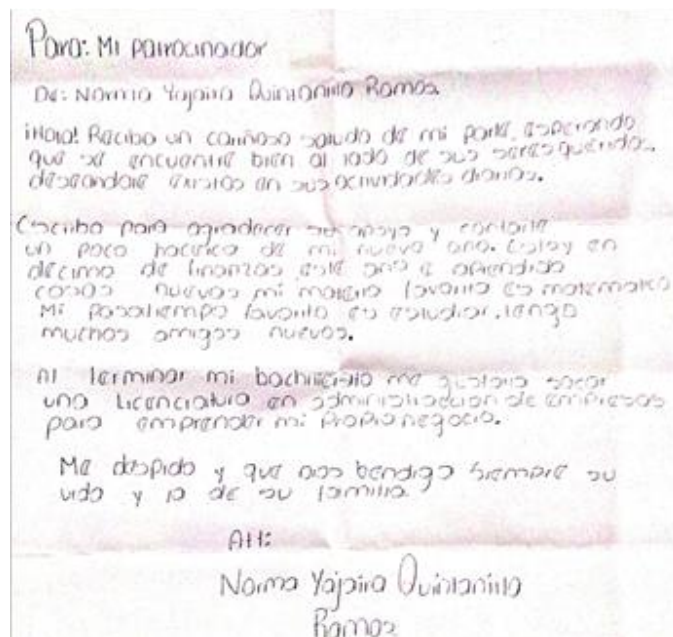 Para: Mi patrocinador
De: Norma Yajaira Quintanilla Ramos
¡Hola! Reciba un cariñoso saludo de mi parte, esperando
que se encuentre bien al lado de sus seres queridos.
deseandole exitos en sus actividades diarias.
Escribo para agradecer su apoyo y contarle
un poco hacerca de mi nuevo año. Estoy en
décimo de finanzas este año e aprendido
cosas nuevas mi materia favorita es matematica
Mi pasatiempo favorito es estudiar, tengo
muchos amigos nuevos.
Al terminar mi bachillerato me gustaria sacar
una Licenciatura en administracion de empresas
para emprender mi propio negocio.
Me despido y que Dios bendiga siempre su
vida y la de su familia.
Att:
Norma Yajaira Quintanilla
Ramos